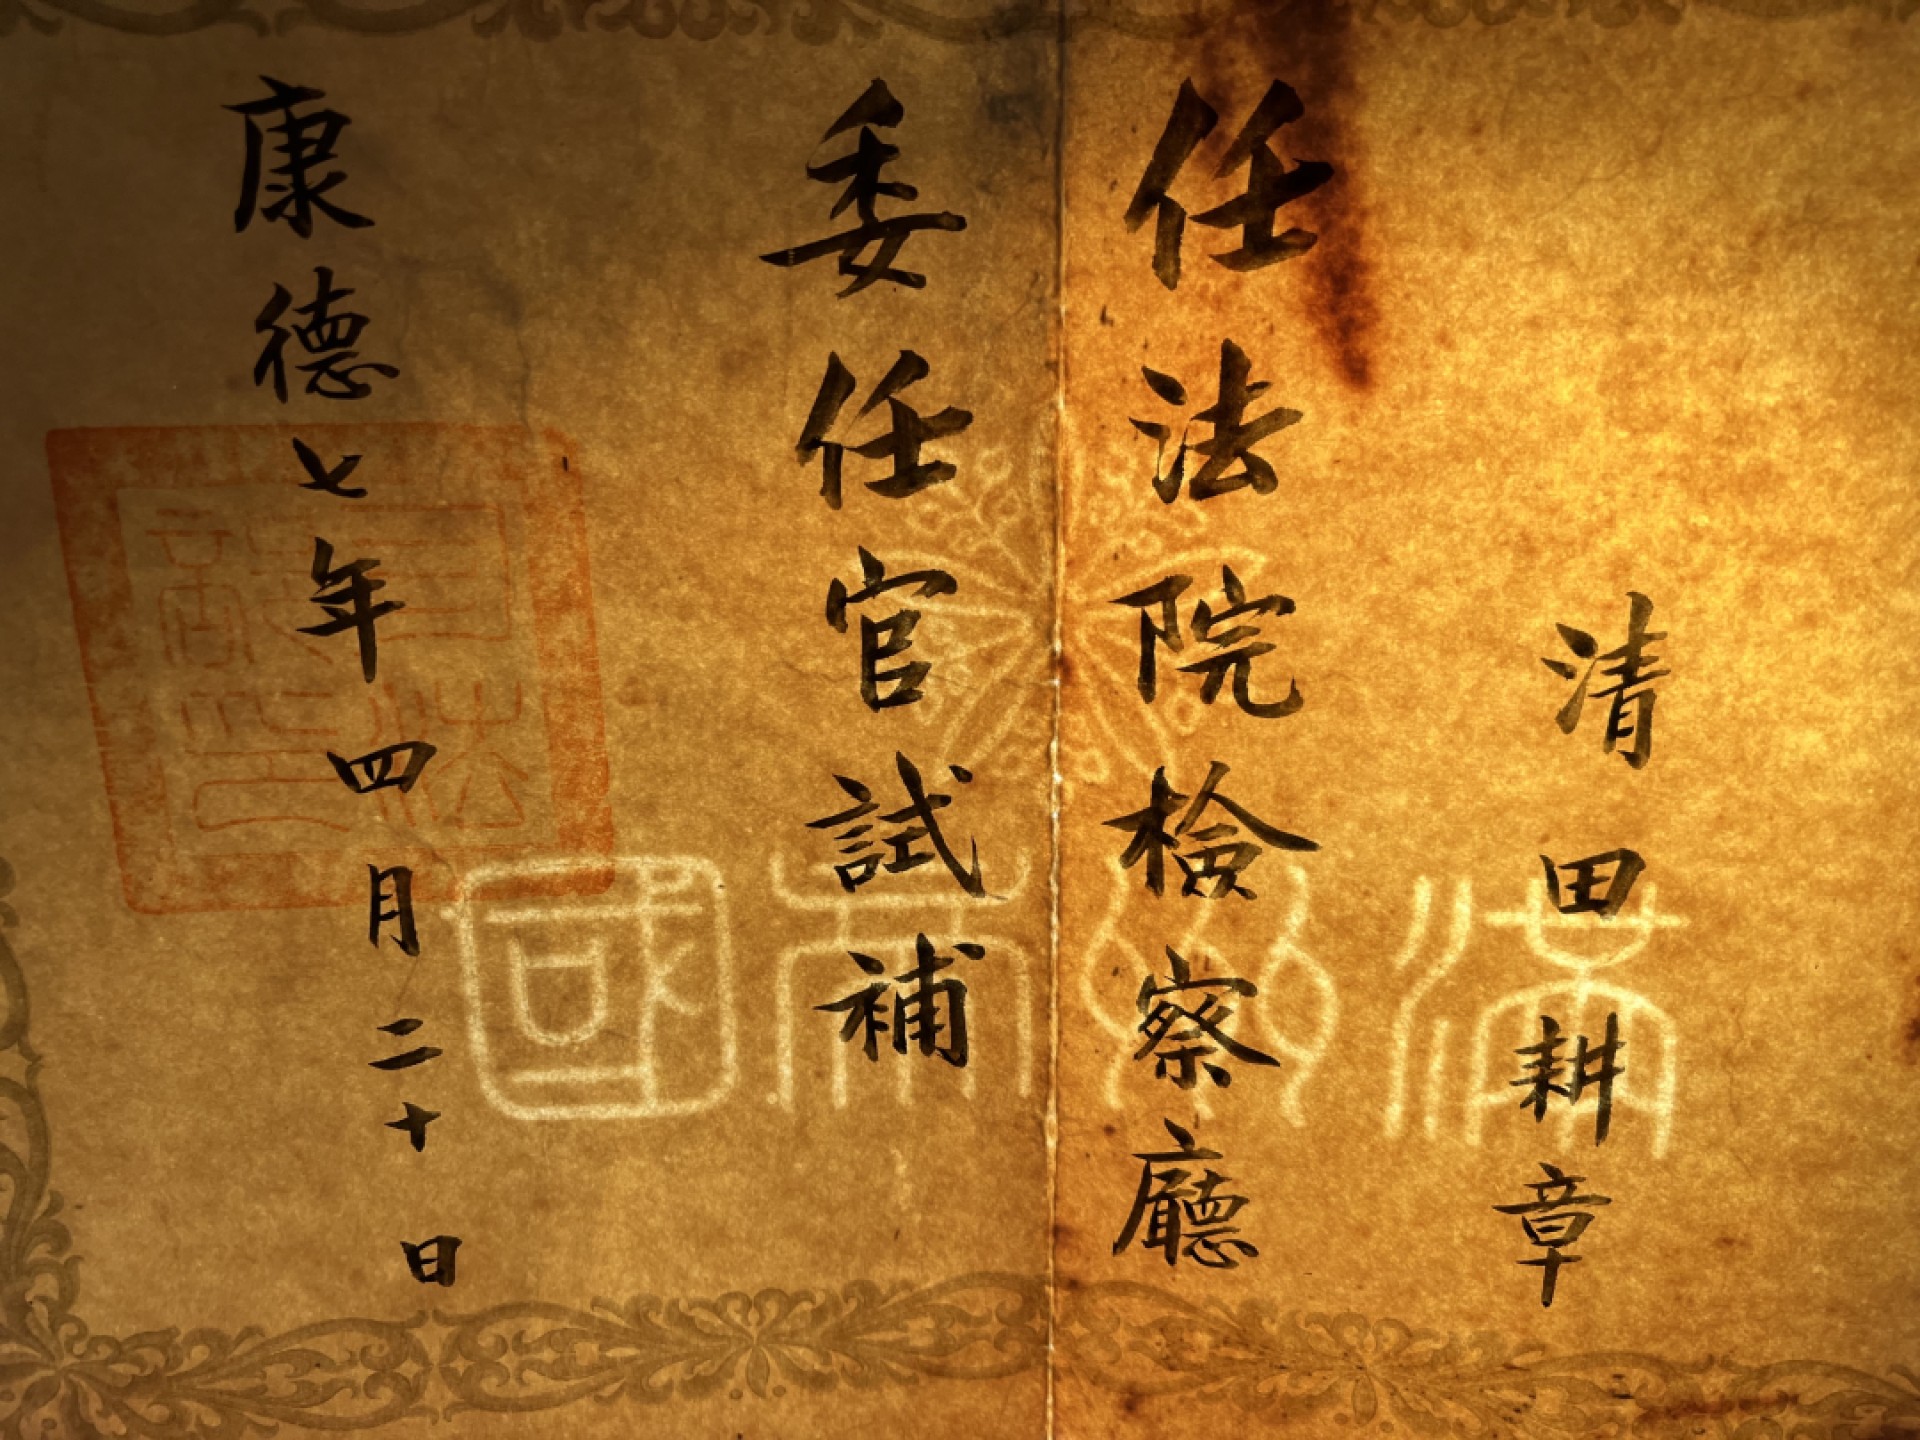 清田耕章
任法院檢察廳
委任官試補
康德七年四月二十日
滿州帝國